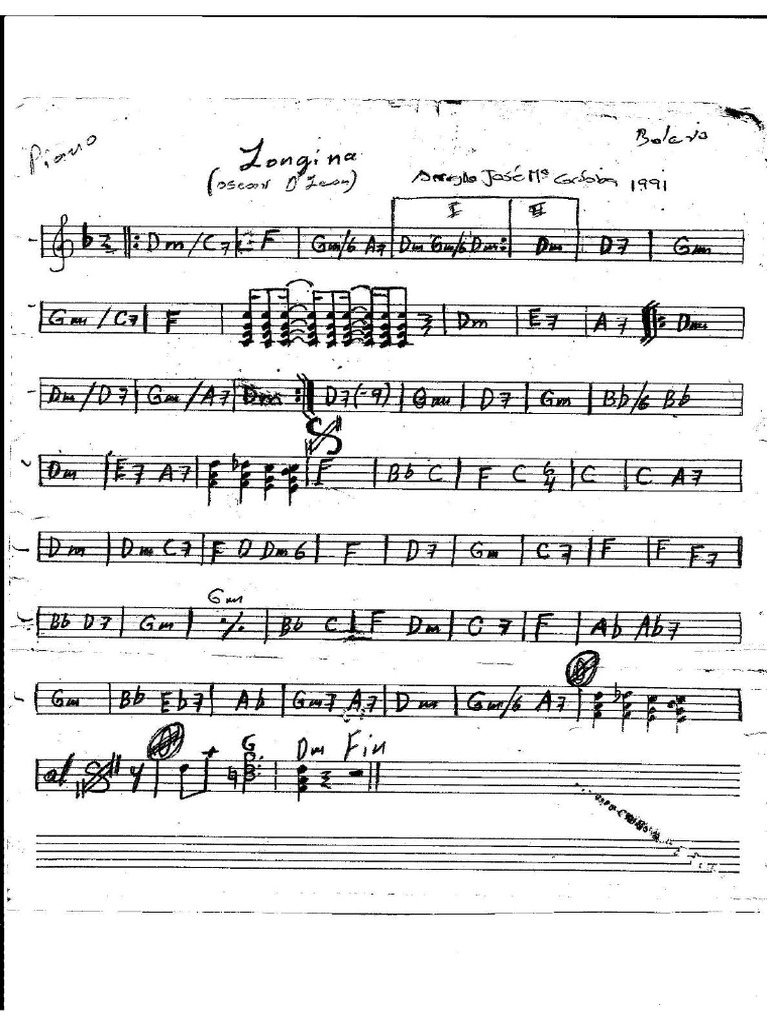 Piano
Longina
Bolero
(oscar D'Leon)
Arreglo José Mª Cordoba 1991
I II
Dm / C7 F Gm/6 A7 Dm Gm/6 Dm Dm D7 Gm
Gm / C7 F Dm E7 A7 Dm
Dm / D7 Gm / A7 Dm D7(-9) Gm D7 Gm Bb/6 Bb
Dm E7 A7 F Bb C F C 6/4 C C A7
Dm Dm C7 F D Dm6 F D7 Gm C7 F F F7
Gm
Bb D7 Gm ٪ Bb C F Dm C7 F Ab Ab7
Gm Bb Eb7 Ab Gm7 A7 Dm Gm/6 A7
G Dm Fin
al y